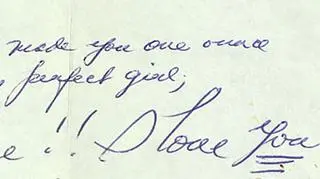 made you one ounce
perfect girl;
!! I love You